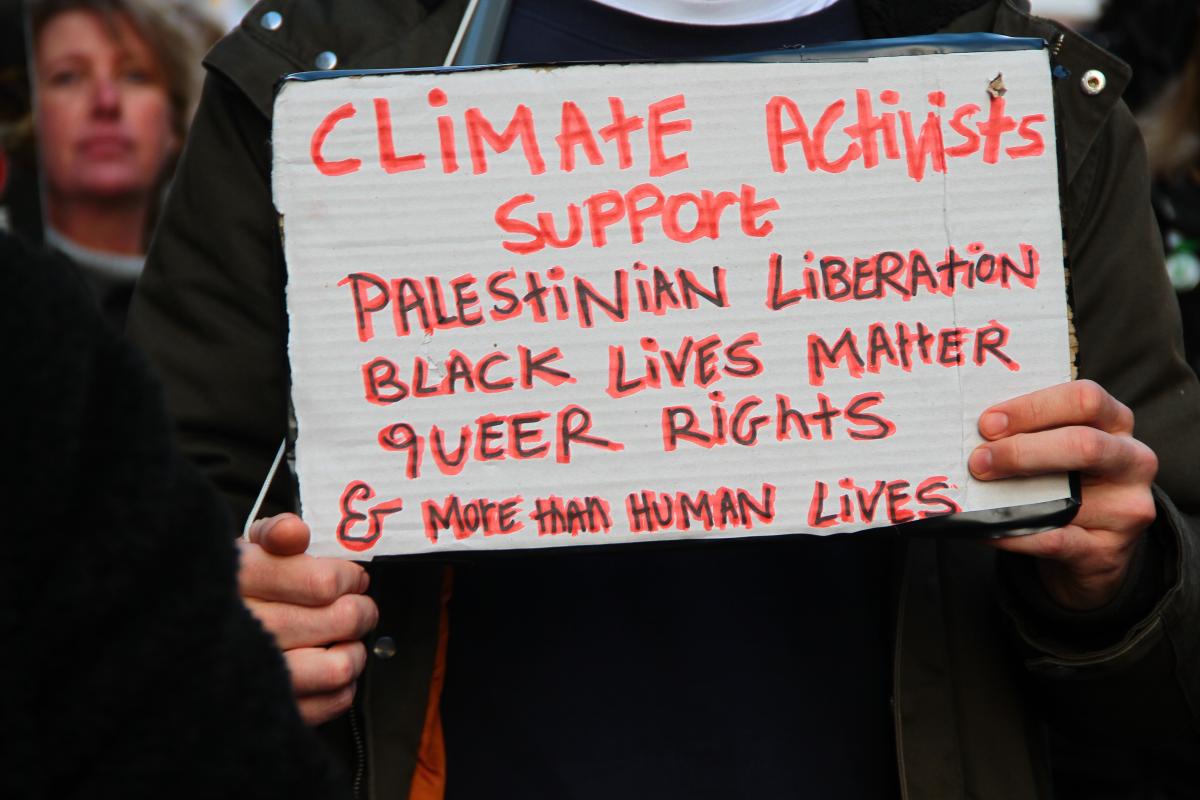 CLiMATE ACtiVists
SUPPORt
PALEStiNiAN LiBERAtiON
BLACK LiVES MAttER
qUEER RiGhtS
& MOrE than HUMAN LiVES